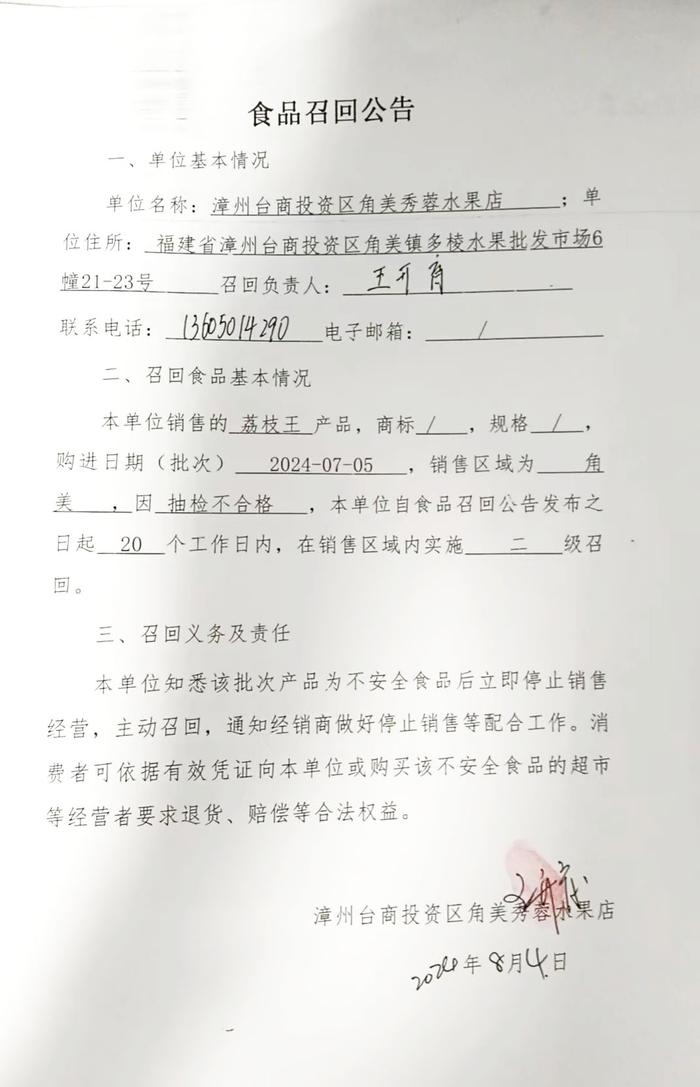 食品召回公告
一、单位基本情况
单位名称：漳州台商投资区角美秀蓉水果店；单
位住所：福建省漳州台商投资区角美镇多棱水果批发市场6
幢21-23号 召回负责人：王开
联系电话：13605014290 电子邮箱：/
二、召回食品基本情况
本单位销售的 荔枝王 产品，商标 / ，规格 / ，
购进日期（批次） 2024-07-05 ，销售区域为 角
美 ，因 抽检不合格 ，本单位自食品召回公告发布之
日起 20 个工作日内，在销售区域内实施 二 级召
回。
三、召回义务及责任
本单位知悉该批次产品为不安全食品后立即停止销售
经营，主动召回，通知经销商做好停止销售等配合工作。消
费者可依据有效凭证向本单位或购买该不安全食品的超市
等经营者要求退货、赔偿等合法权益。
漳州台商投资区角美秀蓉水果店
2024年8月4日